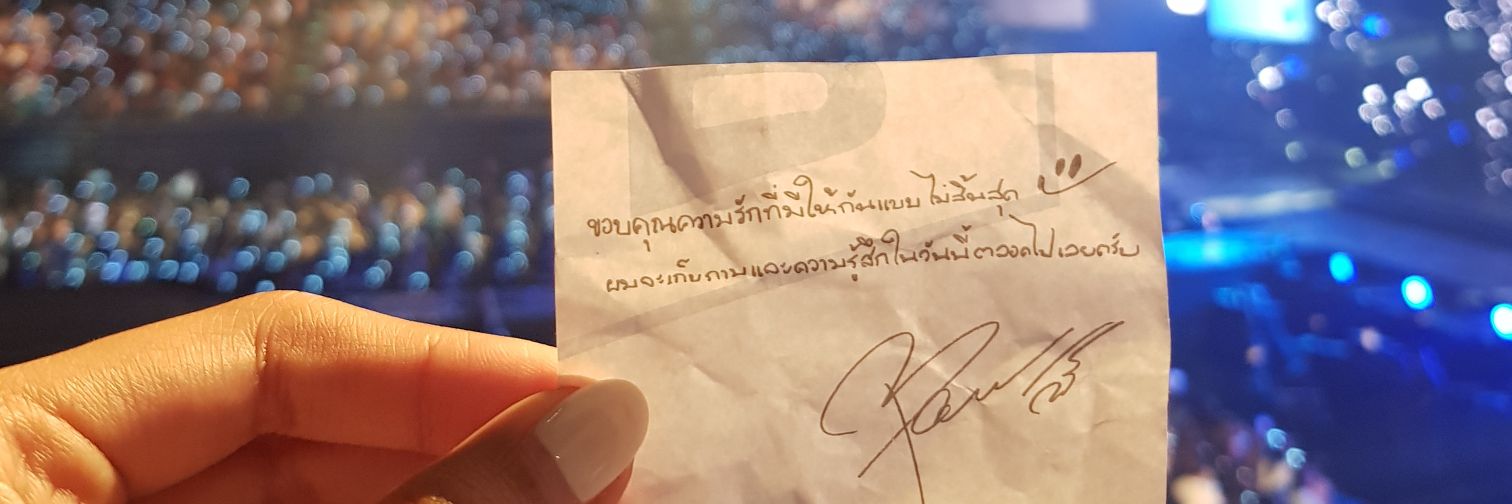 ขอบคุณความรักที่มีให้กันแบบไม่สิ้นสุด
ผมจะเก็บภาพและความรู้สึกในวันนี้ตลอดไปเลยครับ